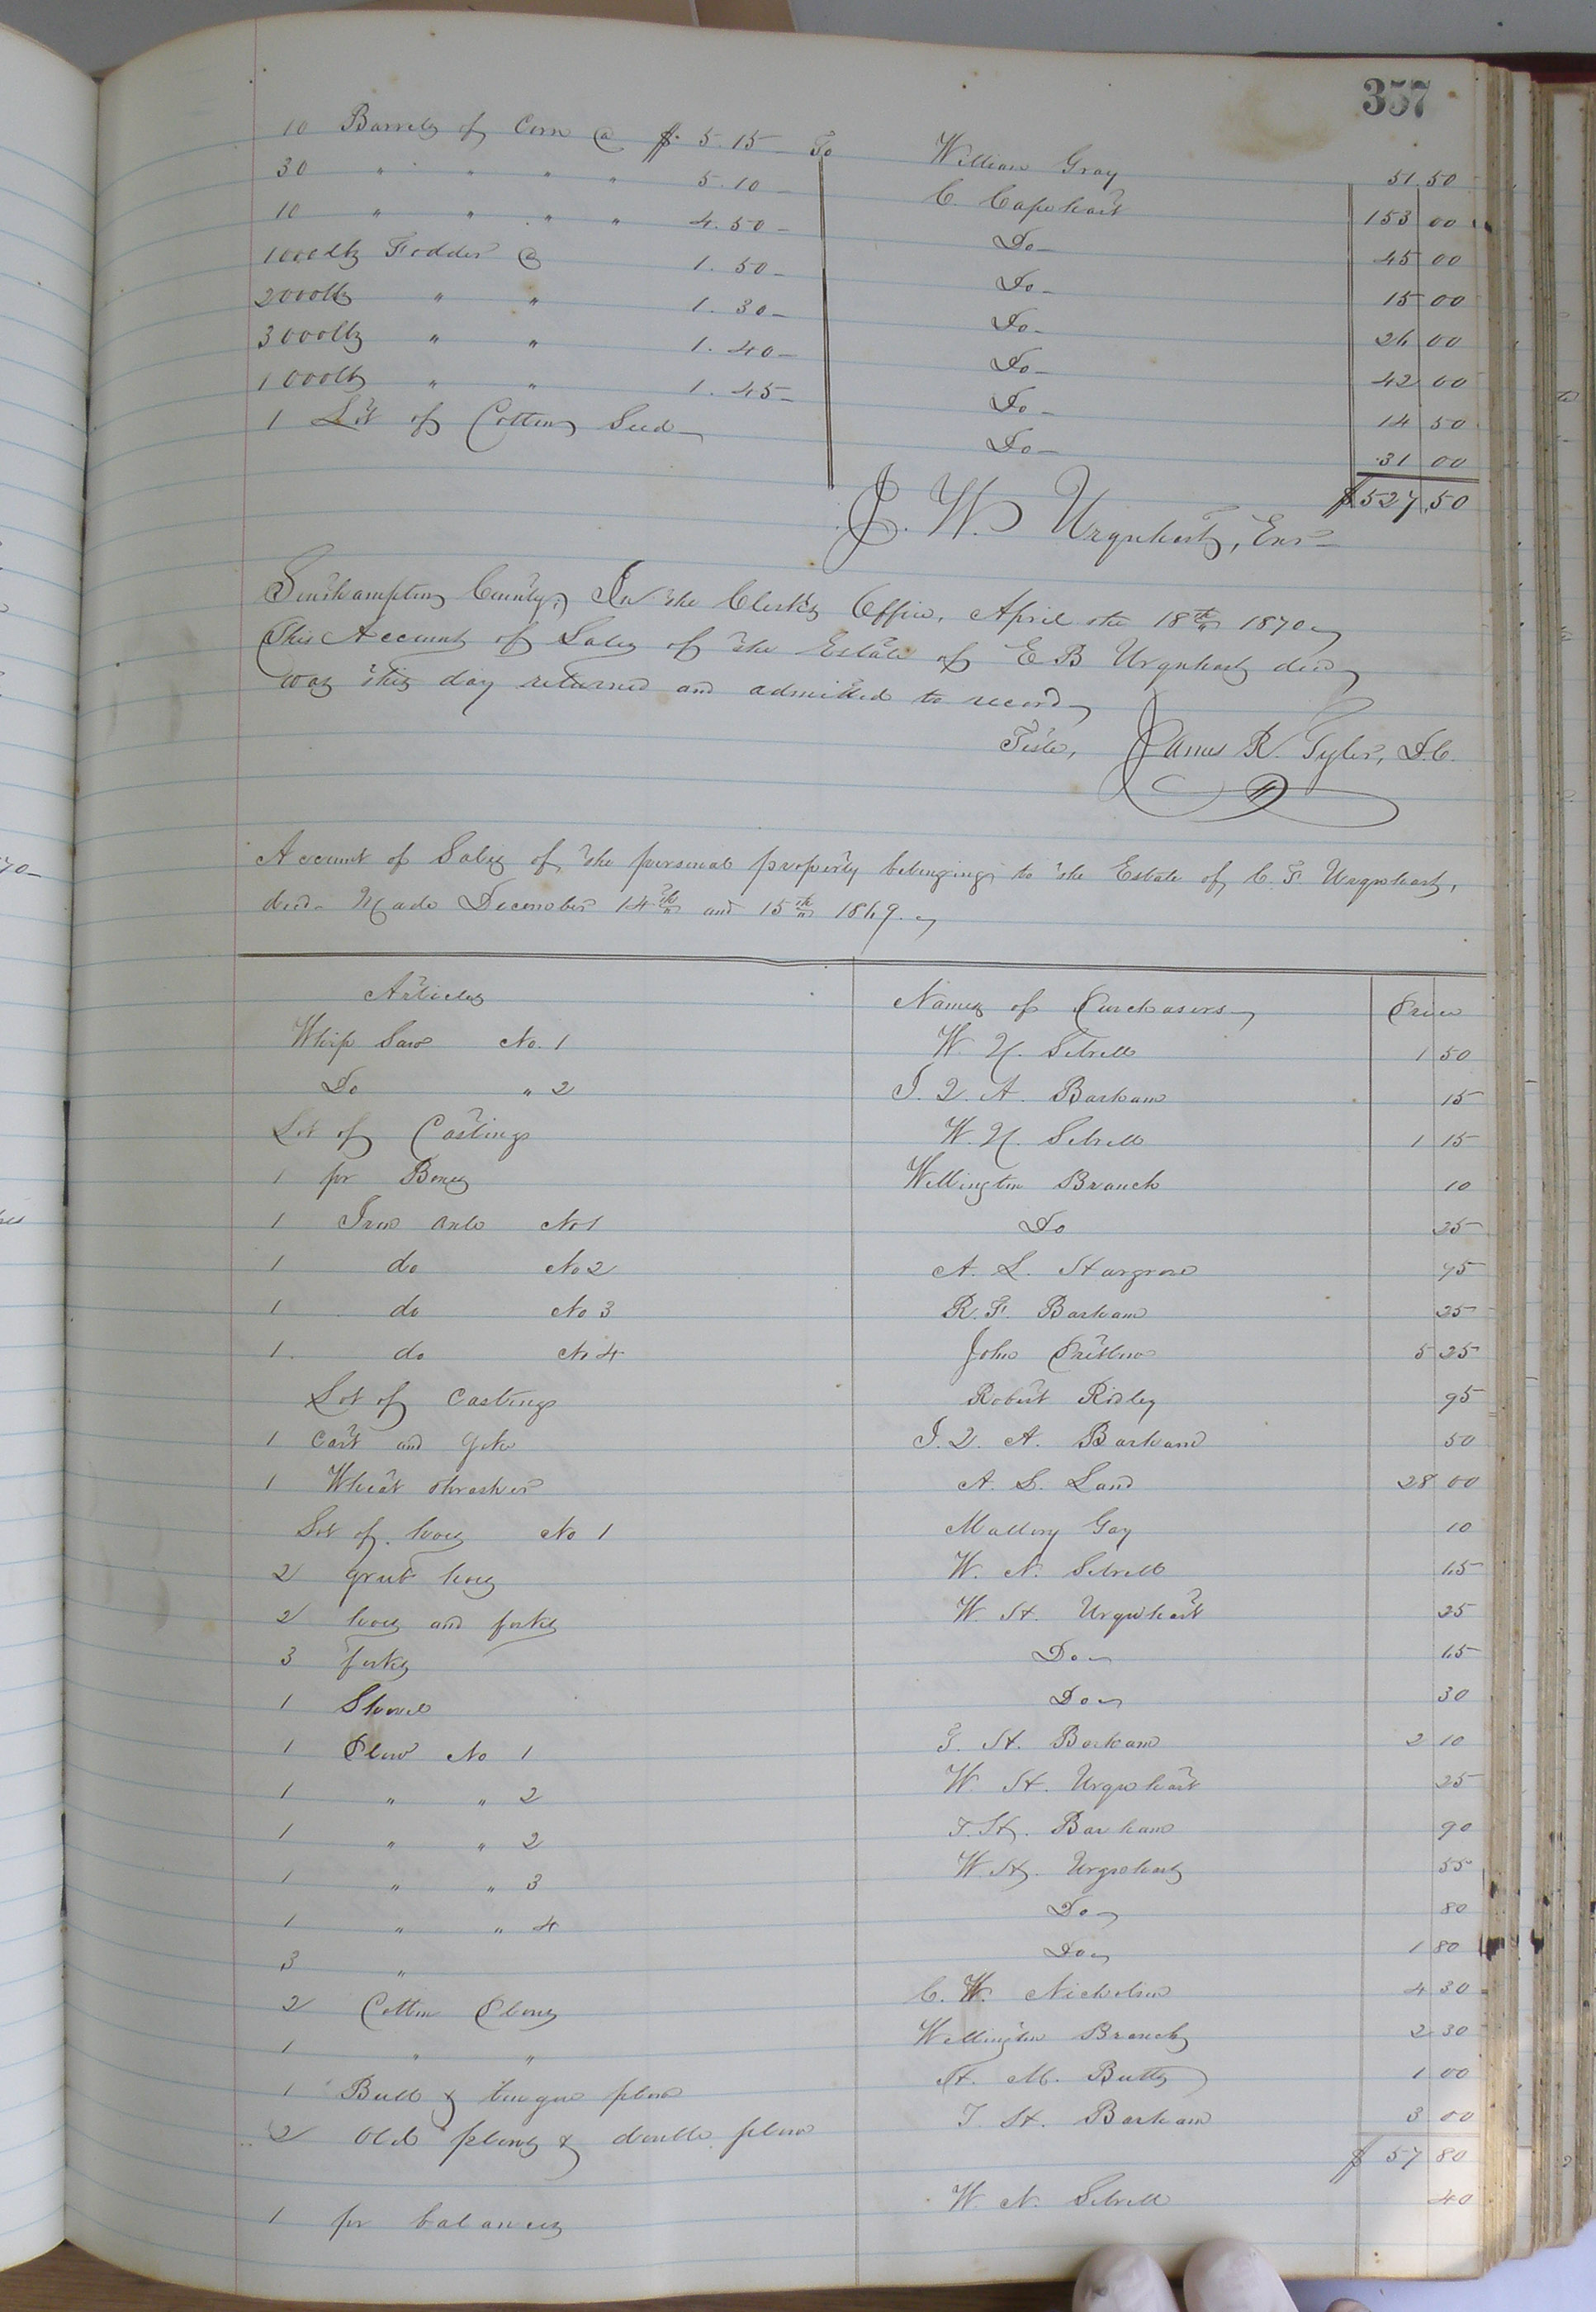 357
10 Barrels of Corn @ $5.15 To William Gray 51.50
30 " " " " 5.10 C. Capehart 153 00
10 " " " " 4.50 Do 45 00
1000 lbs Fodder @ 1.50 Do 15 00
2000 lbs " " 1.30 Do 26 00
3000 lbs " " 1.40 Do 42 00
1000 lbs " " 1.45 Do 14 50
1 Lot of Cotton Seed Do 31 00
$527.50
J. W. Urquhart, Exr
Southampton County, In the Clerk's Office, April the 18th 1870
This Account of Sales of the Estate of E B Urquhart decd
was this day returned and admitted to record
Teste, James R. Tyler, D.C.
Account of Sales of the personal property belonging to the Estate of C. F. Urquhart,
decd. Made December 14th and 15th 1869.
Articles Names of Purchasers Price
Whip Saw No. 1 W. N. Sebrell 1 50
Do " 2 J. Q. A. Barham 15
Lot of Castings W. N. Sebrell 1 15
1 pr Boxes Wellington Branch 10
1 Iron axle No 1 Do 25
1 do No 2 A. L. Hargrove 75
1 do No 3 R. F. Barham 25
1 do No 4 John Pretlow 5 25
Lot of Castings Robert Ridley 95
1 Cart and Yoke J. Q. A. Barham 50
1 Wheat thrasher A. S. Land 28 00
Lot of hoes No 1 Mallory Gay 10
2 grub hoes W. N. Sebrell 15
2 hoes and forks W. H. Urquhart 25
3 forks Do 15
1 Shovel Do 30
1 Plow No 1 T. H. Barham 2 10
1 " " 2 W. H. Urquhart 25
1 " " 2 T. H. Barham 90
1 " " 3 W. H. Urquhart 55
1 " " 4 Do 80
3 " Do 1 80
2 Cotton Plows C. W. Nicholson 4 30
1 " " Wellington Branch 2 30
1 Bull & tongue plow H. M. Butts 1 00
2 Old plows & double plow T. H. Barham 3 00
$57 80
1 pr balances W. N. Sebrell 40